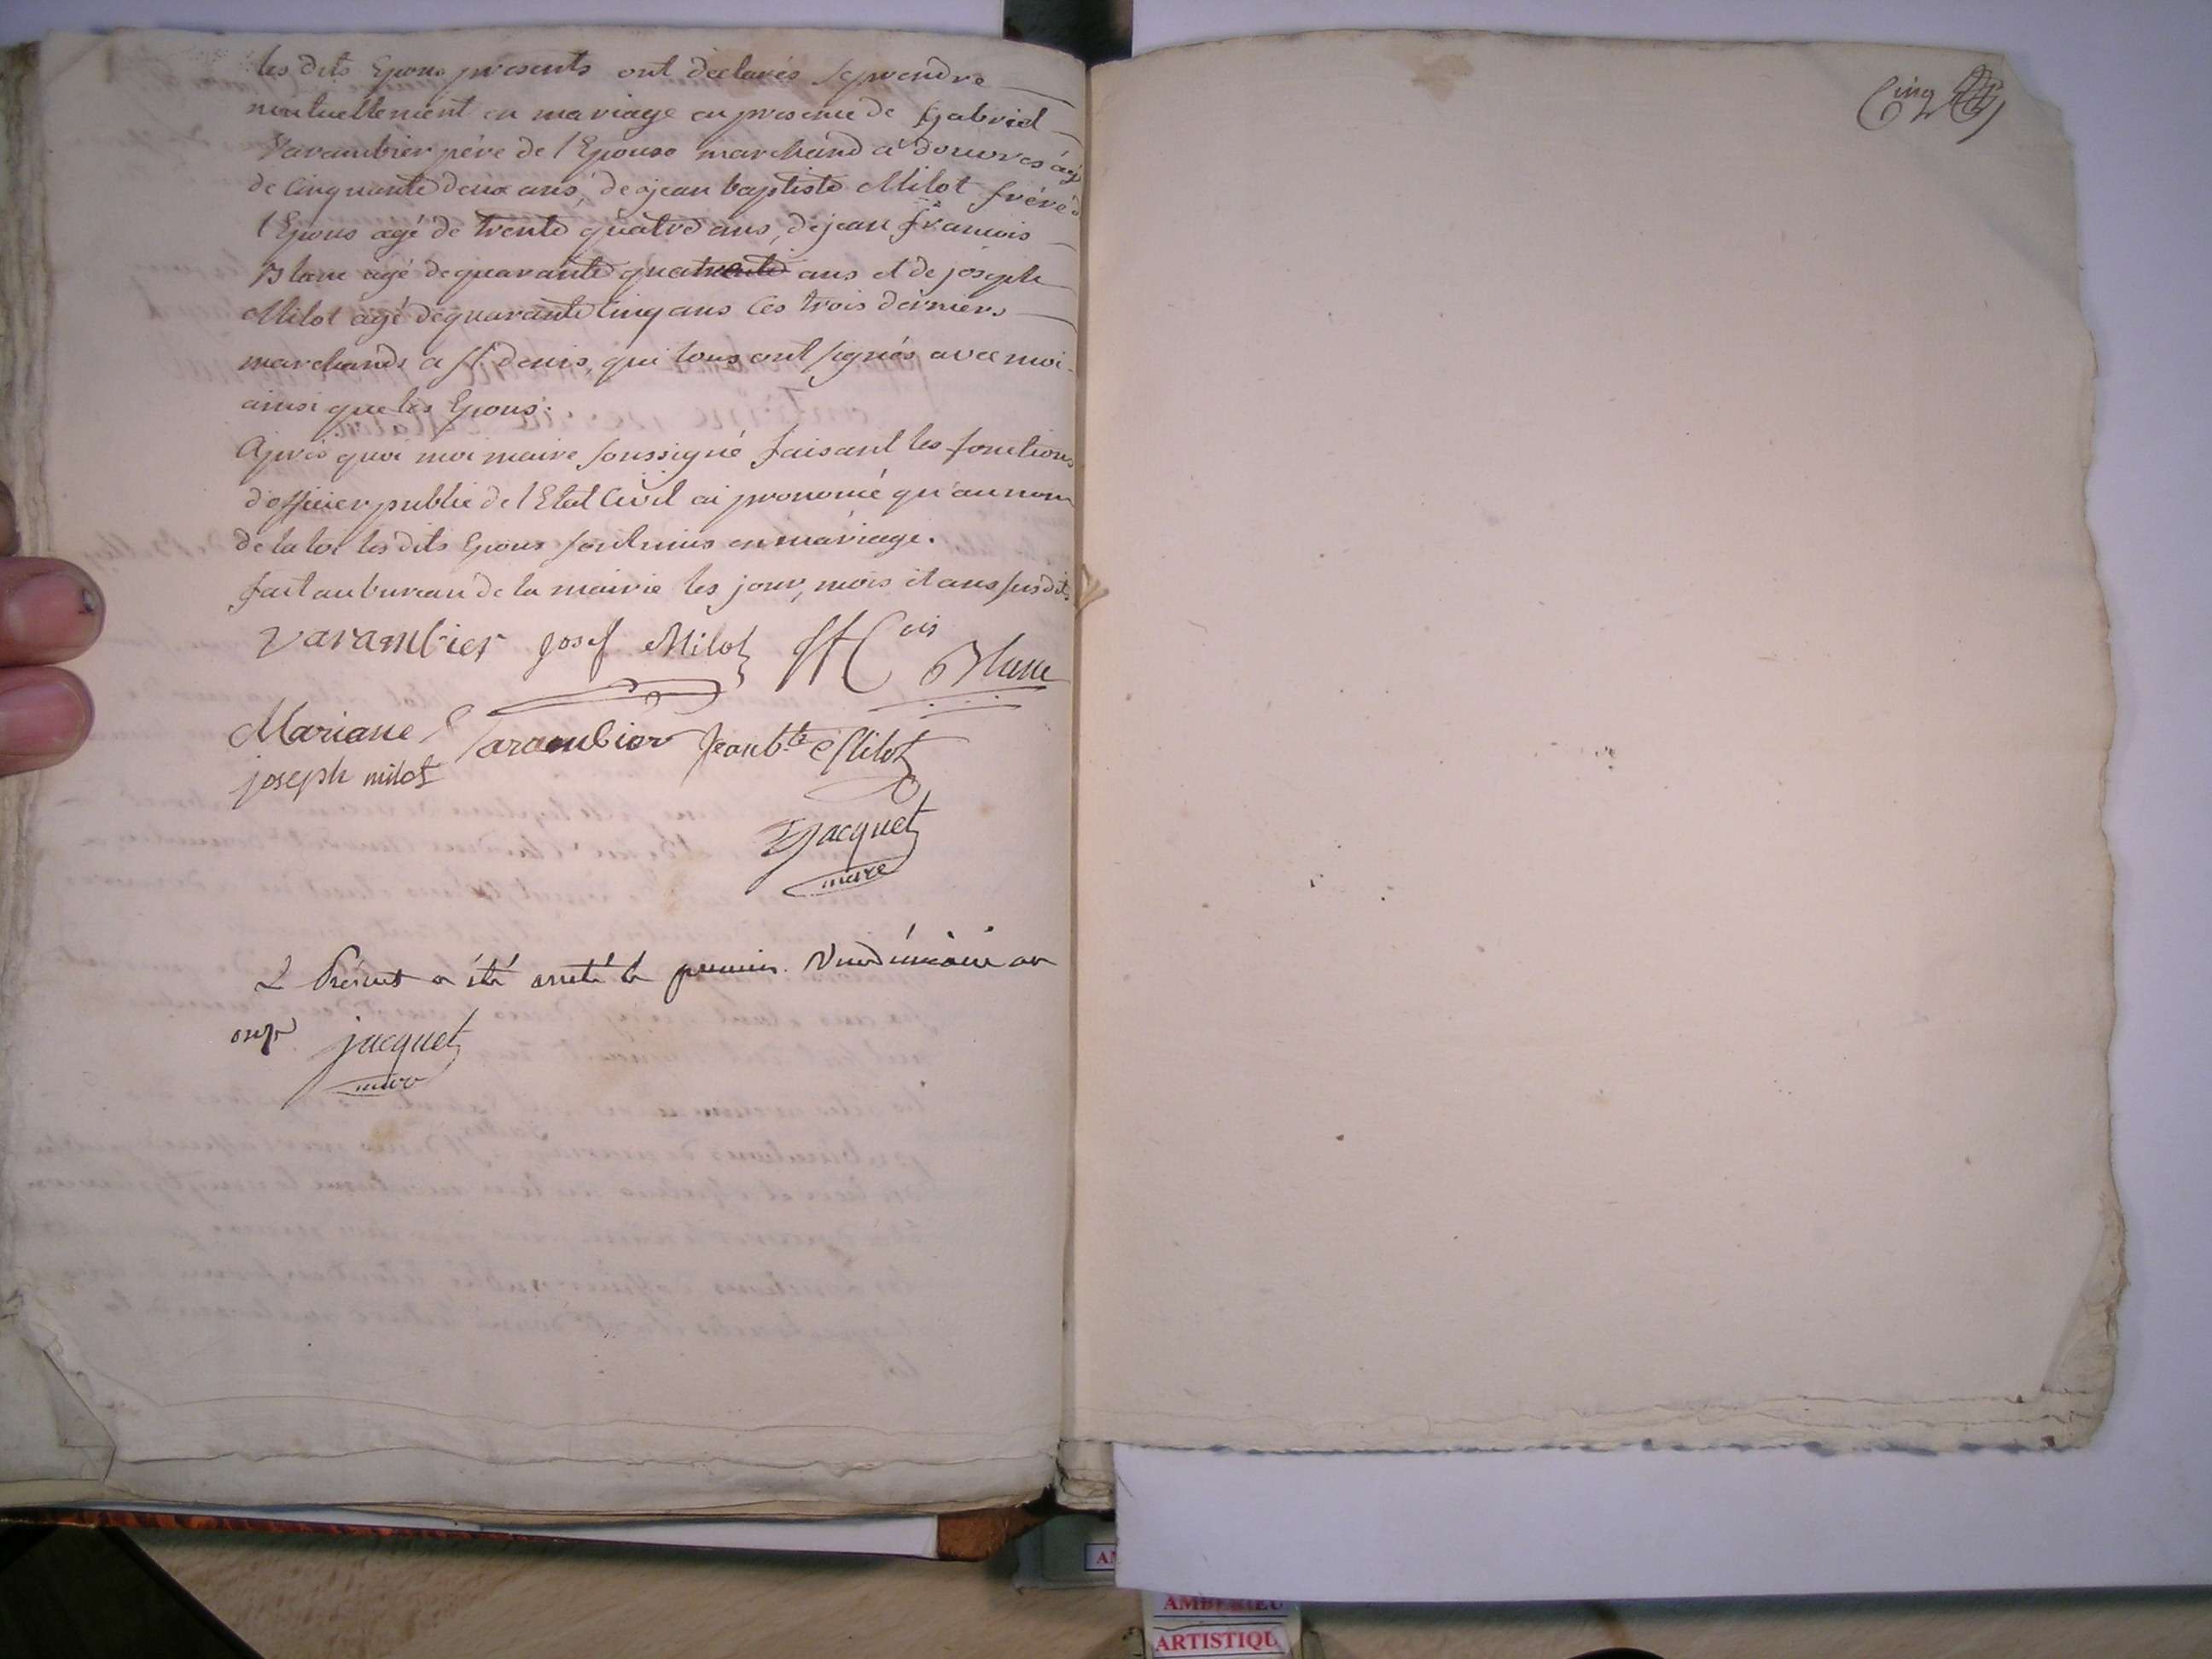 les dits Epous presents ont déclarés se prendre
mutuellement en mariage en presence de Gabriel
Varambier père de l'Epouse marchand à douvres agé
de Cinquante deux ans, de jean baptiste Milot frére d
l'Epous agé de trente quatre ans, de jean francois
Blanc agé de quarante quatre ans et de joseph
Milot agé de quarante Cinq ans Ces trois derniers
marchands a st. denis, qui tous ont signés avec moi
ainsi que les Epous.
Après quoi moi maire soussigné faisant les fonctions
d'officier public de l'Etat Civil ai prononcé qu'au nom
de la loi les dits Epous sont unis en mariage.
fait au bureau de la mairie les jour, mois et ans susdits
Varambier josef Milot Blanc
Mariane Varambier Jean bte Milot
joseph milot
Jacquet
maire
Le Présent a été arreté le premier Vendémiaire an
onze jacquet
maire
Cinq
AMBERIEU
ARTISTIQU